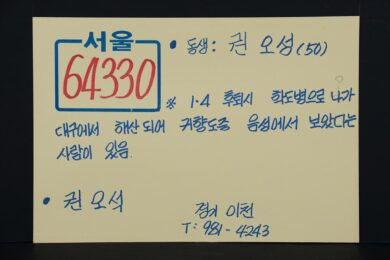 서울
64330
• 동생: 권 오성 (50)
※ 1·4 후퇴시 학도병으로 나가
대구에서 해산되어 귀향도중 음성에서 보았다는
사람이 있음.
• 권오석
경기 이천
T: 981-4243